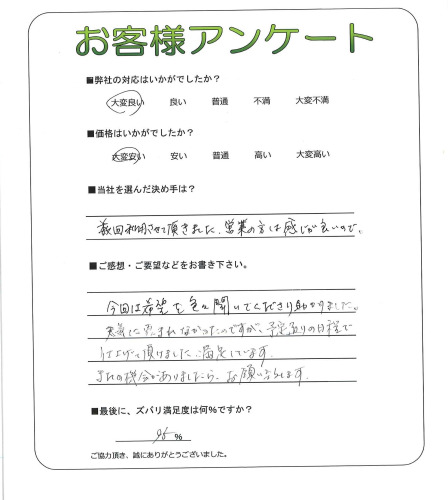 お客様アンケート
■弊社の対応はいかがでしたか？
大変良い 良い 普通 不満 大変不満
■価格はいかがでしたか？
大変安い 安い 普通 高い 大変高い
■当社を選んだ決め手は？
前回利用させて頂きました、営業の方は感じが良いので。
■ご感想・ご要望などをお書き下さい。
今回は希望を色々聞いてくださり助かりました。
天気に恵まれなかったのですが、予定通りの日程で
仕上げて頂けました。満足しています。
またの機会がありましたら、お願い致します。
■最後に、ズバリ満足度は何%ですか？
95 %
ご協力頂き、誠にありがとうございました。